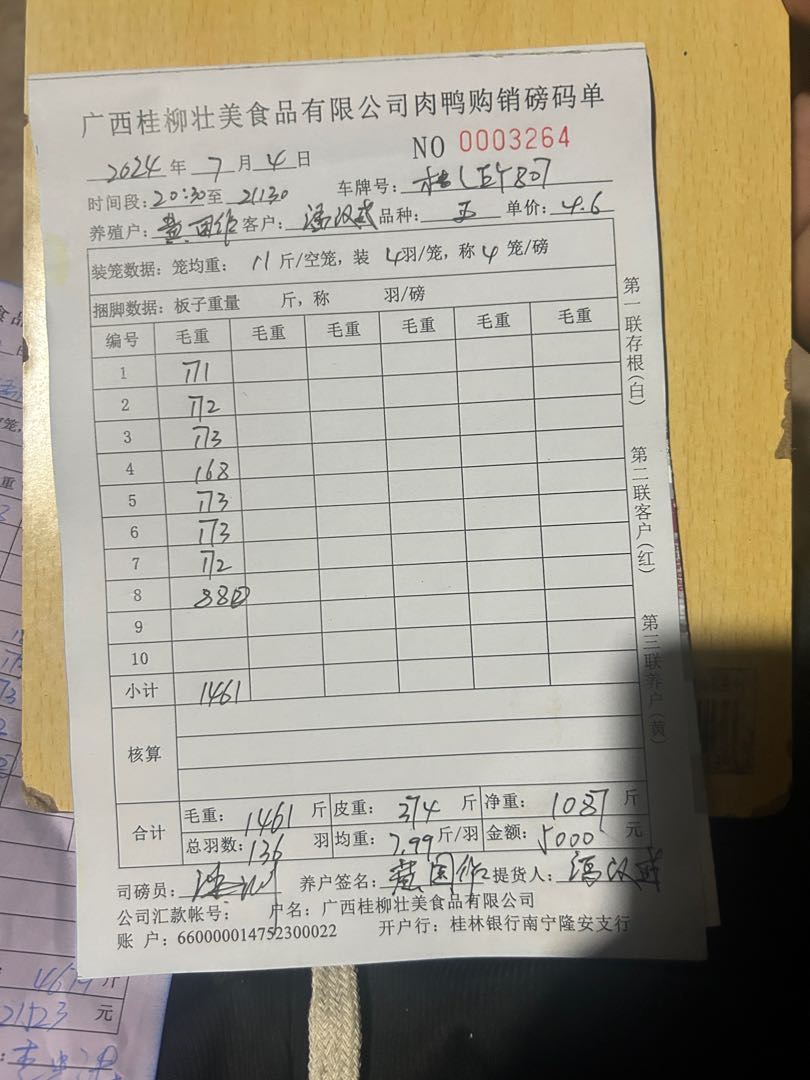 广西桂柳壮美食品有限公司肉鸭购销磅码单
NO 0003264
2024 年 7 月 4 日
时间段: 20:30 至 21:30 车牌号:
养殖户: 黄国作 客户: 品种: 单价: 4.6
装笼数据: 笼均重: 11 斤/空笼, 装 4 羽/笼, 称 4 笼/磅
捆脚数据: 板子重量 斤, 称 羽/磅
编号 毛重 毛重 毛重 毛重 毛重 毛重
1 171
2 172
3 173
4 168
5 173
6 173
7 172
8
9
10
小计 1461
核算
合计 毛重: 1461 斤 皮重: 374 斤 净重: 1087 斤
总羽数: 136 羽 均重: 7.99 斤/羽 金额: 5000 元
司磅员: 养户签名: 黄国作 提货人:
公司汇款帐号: 户名: 广西桂柳壮美食品有限公司
账 户: 660000014752300022 开户行: 桂林银行南宁隆安支行
第一联存根(白)
第二联客户(红)
第三联养户(黄)
斤
元